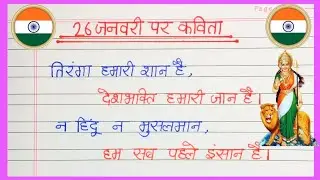 Page
26 जनवरी पर कविता
तिरंगा हमारी शान है,
देशभक्ति हमारी जान है।
न हिंदू न मुसलमान,
हम सब पहले इंसान है।